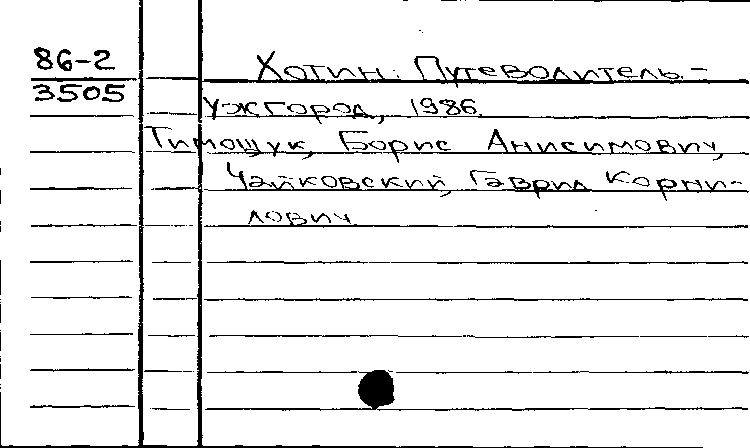 86-2
3505
Хотин: Путеводитель.-
Ужгород, 1986.
Тимощук, Борис Анисимович,
Чайковский, Гаврил Корни-
лович